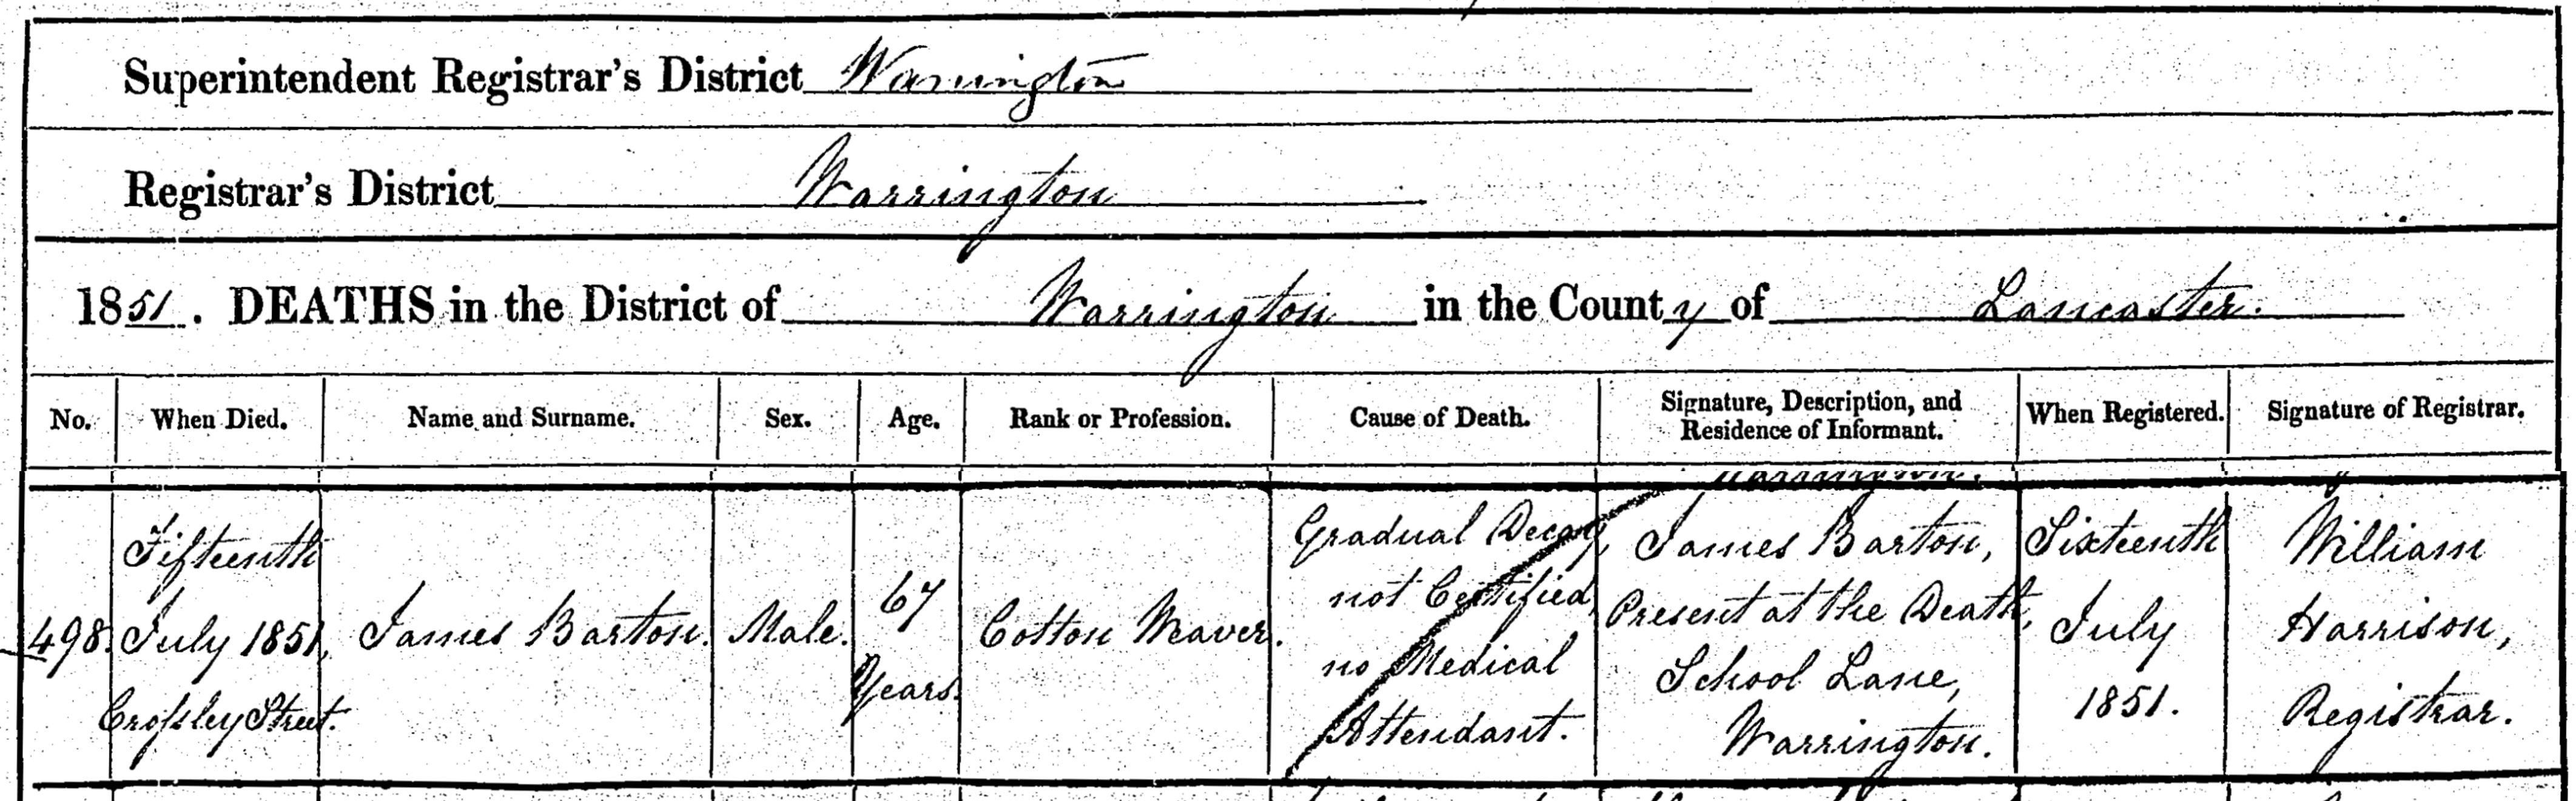 Superintendent Registrar's District Warrington
Registrar's District Warrington
1851. DEATHS in the District of Warrington in the County of Lancaster.
No. When Died. Name and Surname. Sex. Age. Rank or Profession. Cause of Death. Signature, Description, and Residence of Informant. When Registered. Signature of Registrar.
498.
Fifteenth
July 1851,
Croſsley Street.
James Barton.
Male.
67
Years.
Cotton Weaver.
Gradual Decay,
not Certified,
no Medical
Attendant.
James Barton,
Present at the Death,
School Lane,
Warrington.
Sixteenth
July
1851.
William
Harrison,
Registrar.